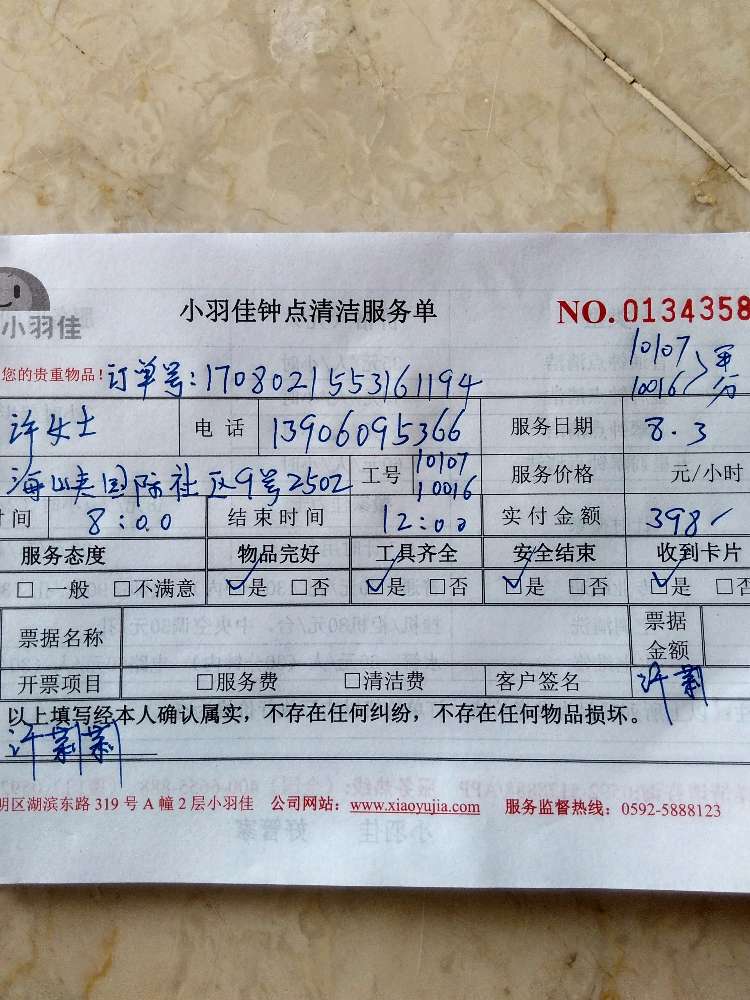 小羽佳
小羽佳钟点清洁服务单
NO. 0134358
10107
10016
您的贵重物品！订单号：1708021553161194
许女士 电话 13906095366 服务日期 8.3
国际社区9号2502 工号 10107 10016 服务价格 元/小时
时间 8:00 结束时间 12:00 实付金额 398
服务态度 物品完好 工具齐全 安全结束 收到卡片
□一般 □不满意 ☑是 □否 ☑是 □否 ☑是 □否 ☑是 □否
票据名称 票据金额
开票项目 □服务费 □清洁费 客户签名 许莉
以上填写经本人确认属实，不存在任何纠纷，不存在任何物品损坏。
许莉莉
明区湖滨东路 319 号 A 幢 2 层小羽佳 公司网站：www.xiaoyujia.com 服务监督热线：0592-5888123